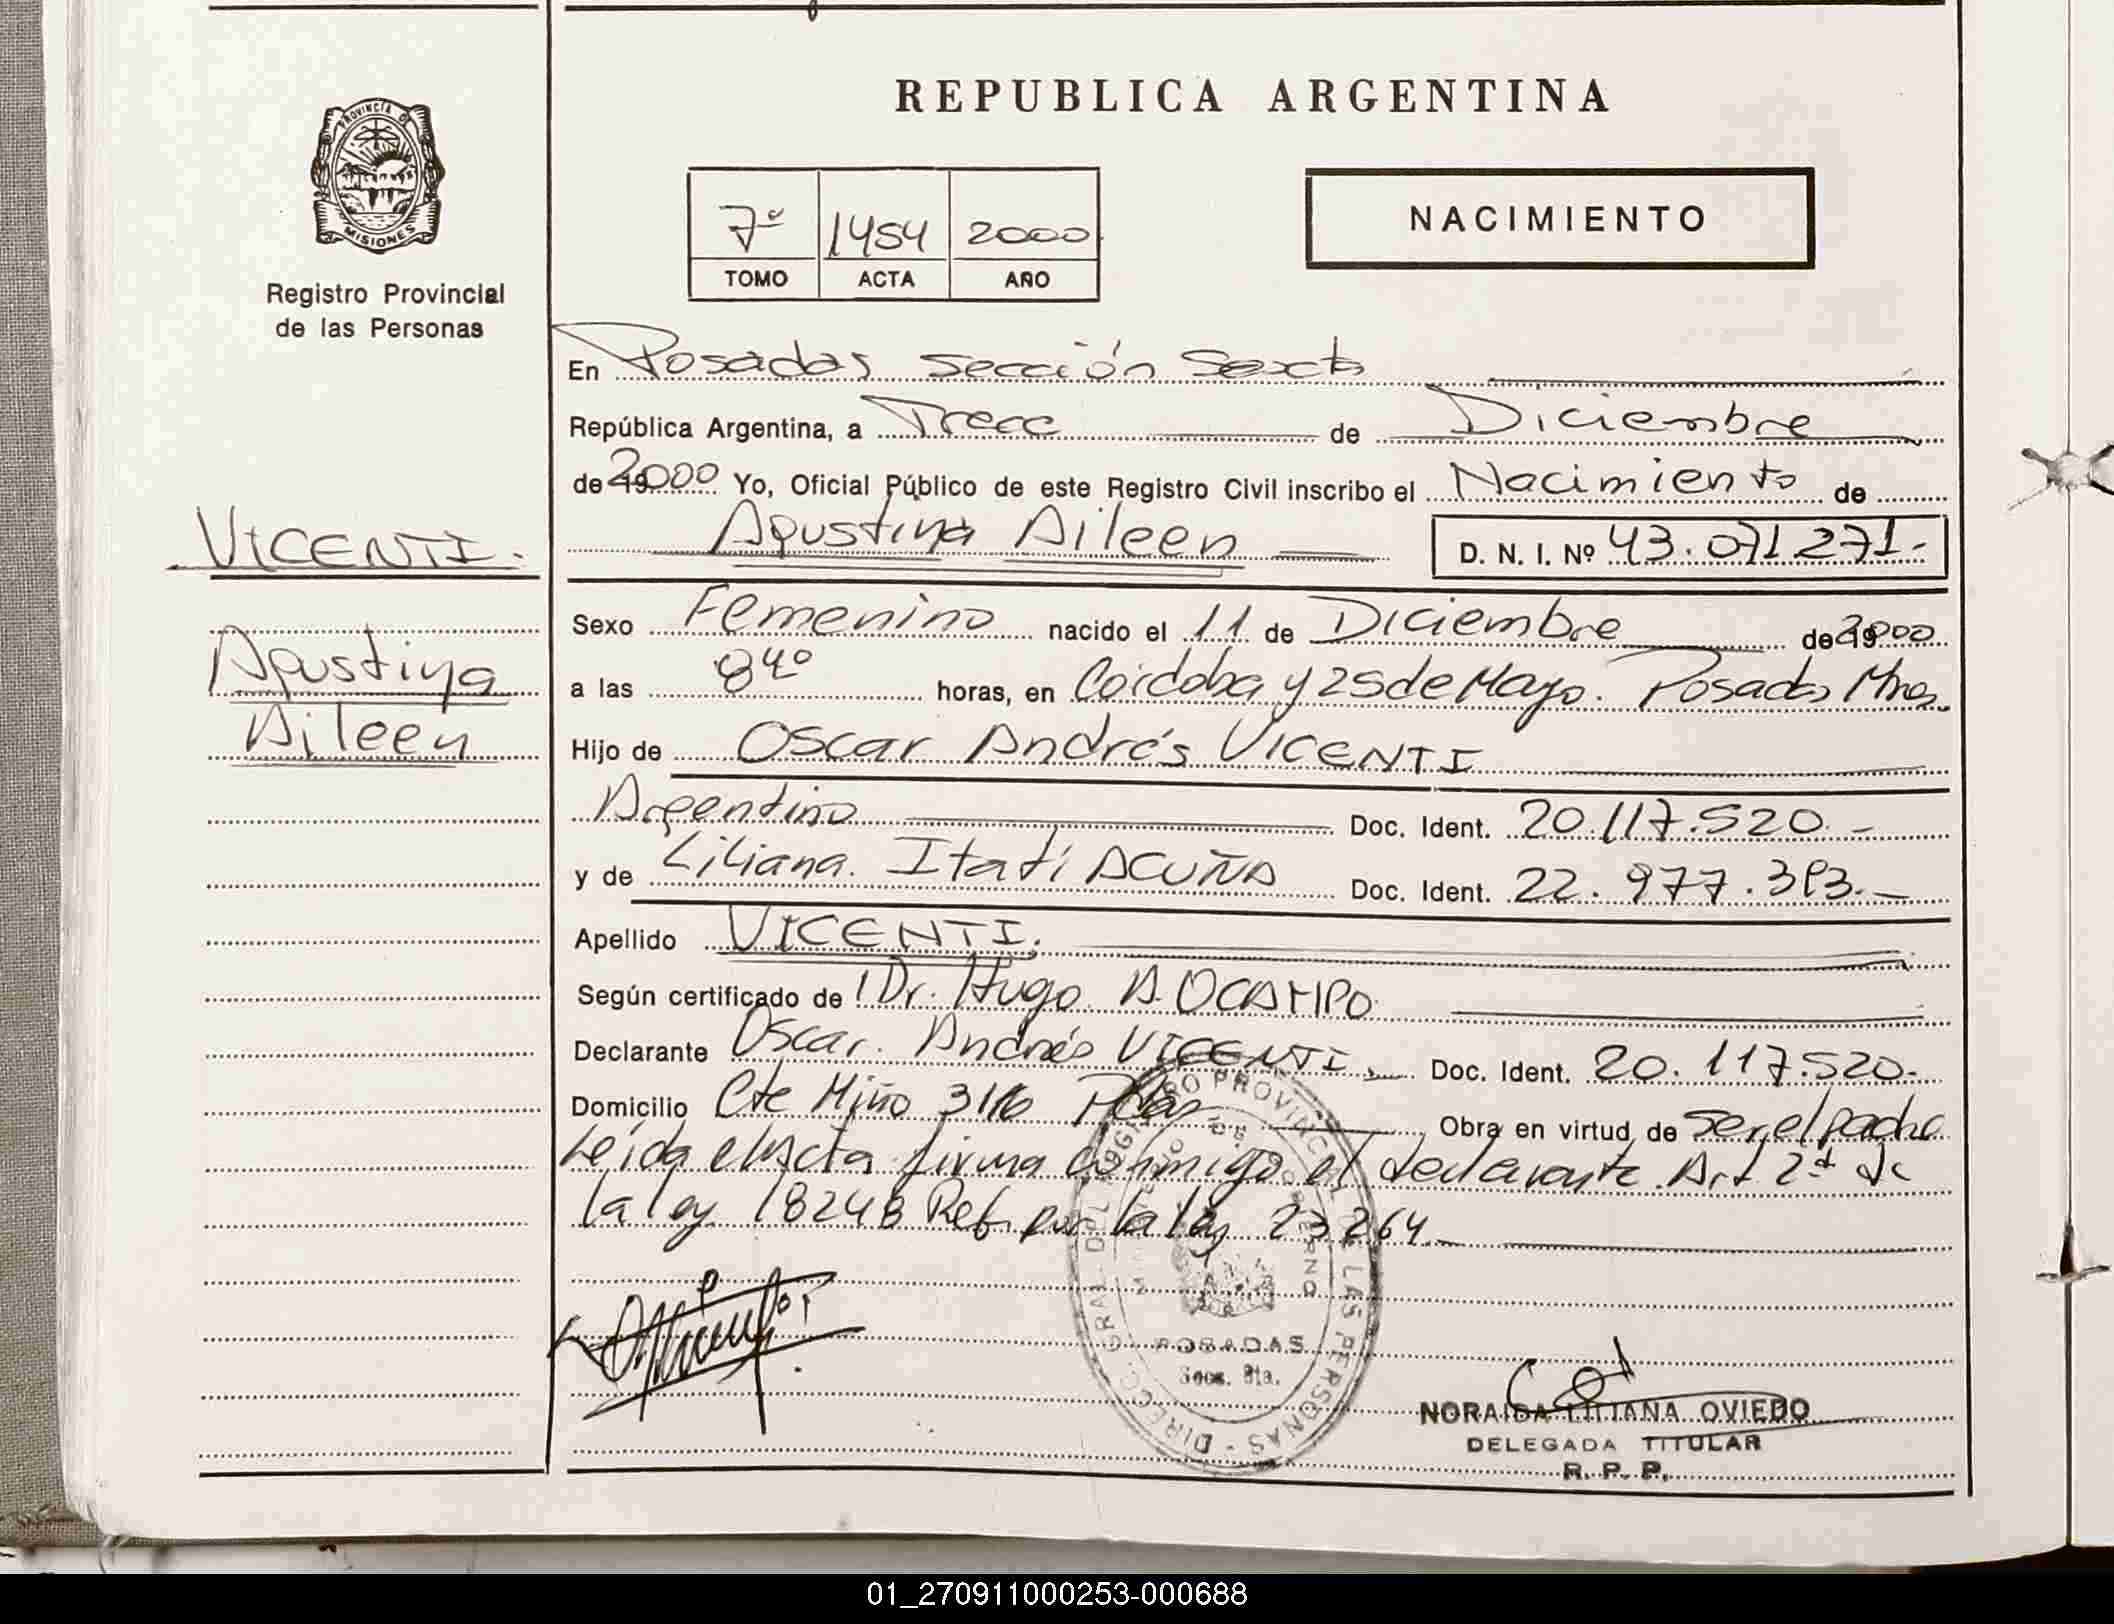 REPUBLICA ARGENTINA
PROVINCIA DE
MISIONES
Registro Provincial
de las Personas
7º 1454 2000
TOMO ACTA AÑO
NACIMIENTO
En Posadas sección Sexta
República Argentina, a Trece de Diciembre
de 192000 Yo, Oficial Público de este Registro Civil inscribo el Nacimiento de
Agustina Aileen D. N. I. Nº 43.071.271.-
VICENTI.
Agustina
Aileen
Sexo Femenino nacido el 11 de Diciembre de 192000
a las 8 40 horas, en Córdoba y 25 de Mayo. Posadas Mnes.
Hijo de Oscar Andrés VICENTI
Argentino Doc. Ident. 20.117.520.-
y de Liliana Itatí ACUÑA Doc. Ident. 22.977.393.-
Apellido VICENTI.
Según certificado de Dr. Hugo A. OCAMPO
Declarante Oscar Andrés VICENTI Doc. Ident. 20.117.520.-
Domicilio Cte Miño 3116 Pdas Obra en virtud de ser el padre
Leída el Acta firma conmigo el declarante. Art 2º de
la ley 18248 Ref. por la ley 23264.-
DIRECC. GRAL. DEL REGISTRO PROVINCIAL DE LAS PERSONAS
MINISTERIO DE GOBIERNO
POSADAS
Secc. 6ta.
NORAIDA LILIANA OVIEDO
DELEGADA TITULAR
R. P. P.
01_270911000253-000688